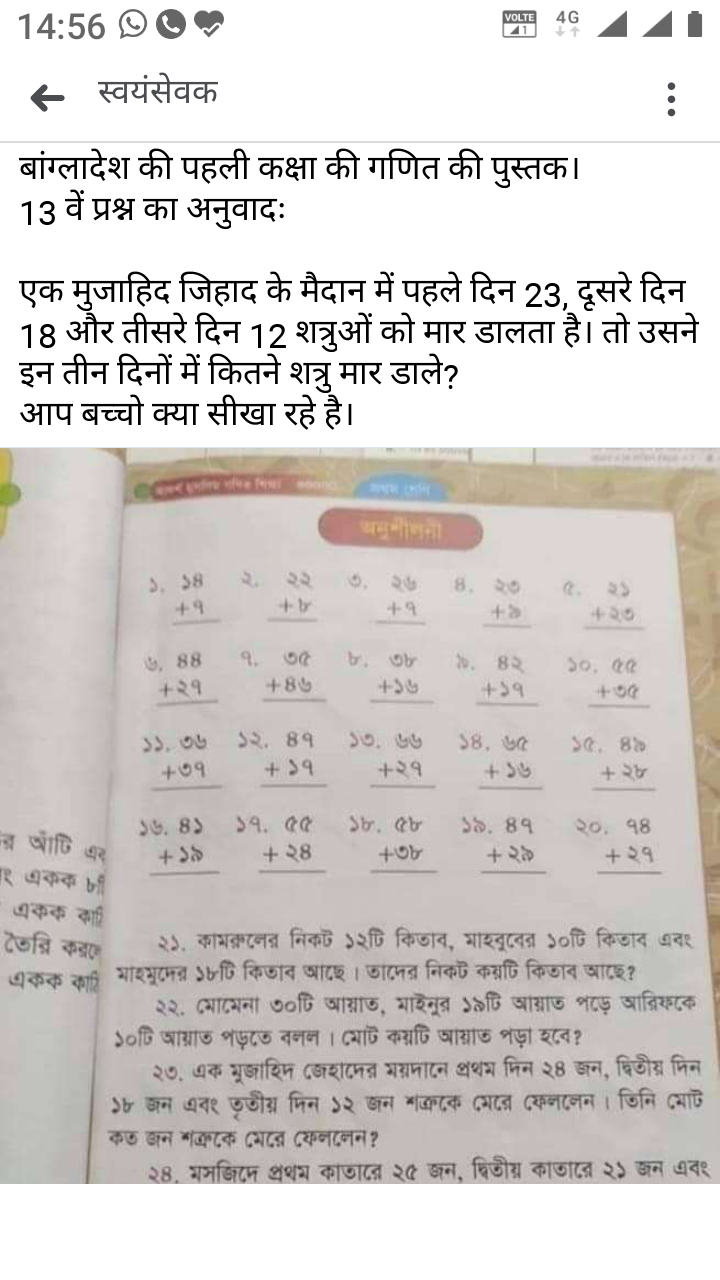 14:56
VOLTE 1 4G
स्वयंसेवक
बांग्लादेश की पहली कक्षा की गणित की पुस्तक।
13 वें प्रश्न का अनुवादः
एक मुजाहिद जिहाद के मैदान में पहले दिन 23, दूसरे दिन
18 और तीसरे दिन 12 शत्रुओं को मार डालता है। तो उसने
इन तीन दिनों में कितने शत्रु मार डाले?
आप बच्चो क्या सीखा रहे है।
প্রথম শ্রেণি
অনুশীলনী
১. ১৪ ২. ২২ ৩. ২৬ ৪. ২৩ ৫. ২১
+৭ +৮ +৭ +৯ +২৩
৬. ৪৪ ৭. ৩৫ ৮. ৩৮ ৯. ৪২ ১০. ৫৫
+২৭ +৪৬ +১৬ +১৭ +৩৫
১১. ৩৬ ১২. ৪৭ ১৩. ৬৬ ১৪. ৬৫ ১৫. ৪৯
+৩৭ + ১৭ +২৭ + ১৬ + ২৮
১৬. ৪১ ১৭. ৫৫ ১৮. ৫৮ ১৯. ৪৭ ২০. ৭৪
+ ১৯ + ২৪ +৩৮ + ২৯ + ২৭
র আঁটি এব
ং একক ৮টি
একক কাঠি
তৈরি করলে
একক কাঠি
২১. কামরুলের নিকট ১২টি কিতাব, মাহবুবের ১০টি কিতাব এবং
মাহমুদের ১৮টি কিতাব আছে। তাদের নিকট কয়টি কিতাব আছে?
২২. মোমেনা ৩০টি আয়াত, মাইনুর ১৯টি আয়াত পড়ে আরিফকে
১০টি আয়াত পড়তে বলল। মোট কয়টি আয়াত পড়া হবে?
২৩. এক মুজাহিদ জেহাদের ময়দানে প্রথম দিন ২৪ জন, দ্বিতীয় দিন
১৮ জন এবং তৃতীয় দিন ১২ জন শত্রুকে মেরে ফেললেন। তিনি মোট
কত জন শত্রুকে মেরে ফেললেন?
২৪. মসজিদে প্রথম কাতারে ২৫ জন, দ্বিতীয় কাতারে ২১ জন এবং